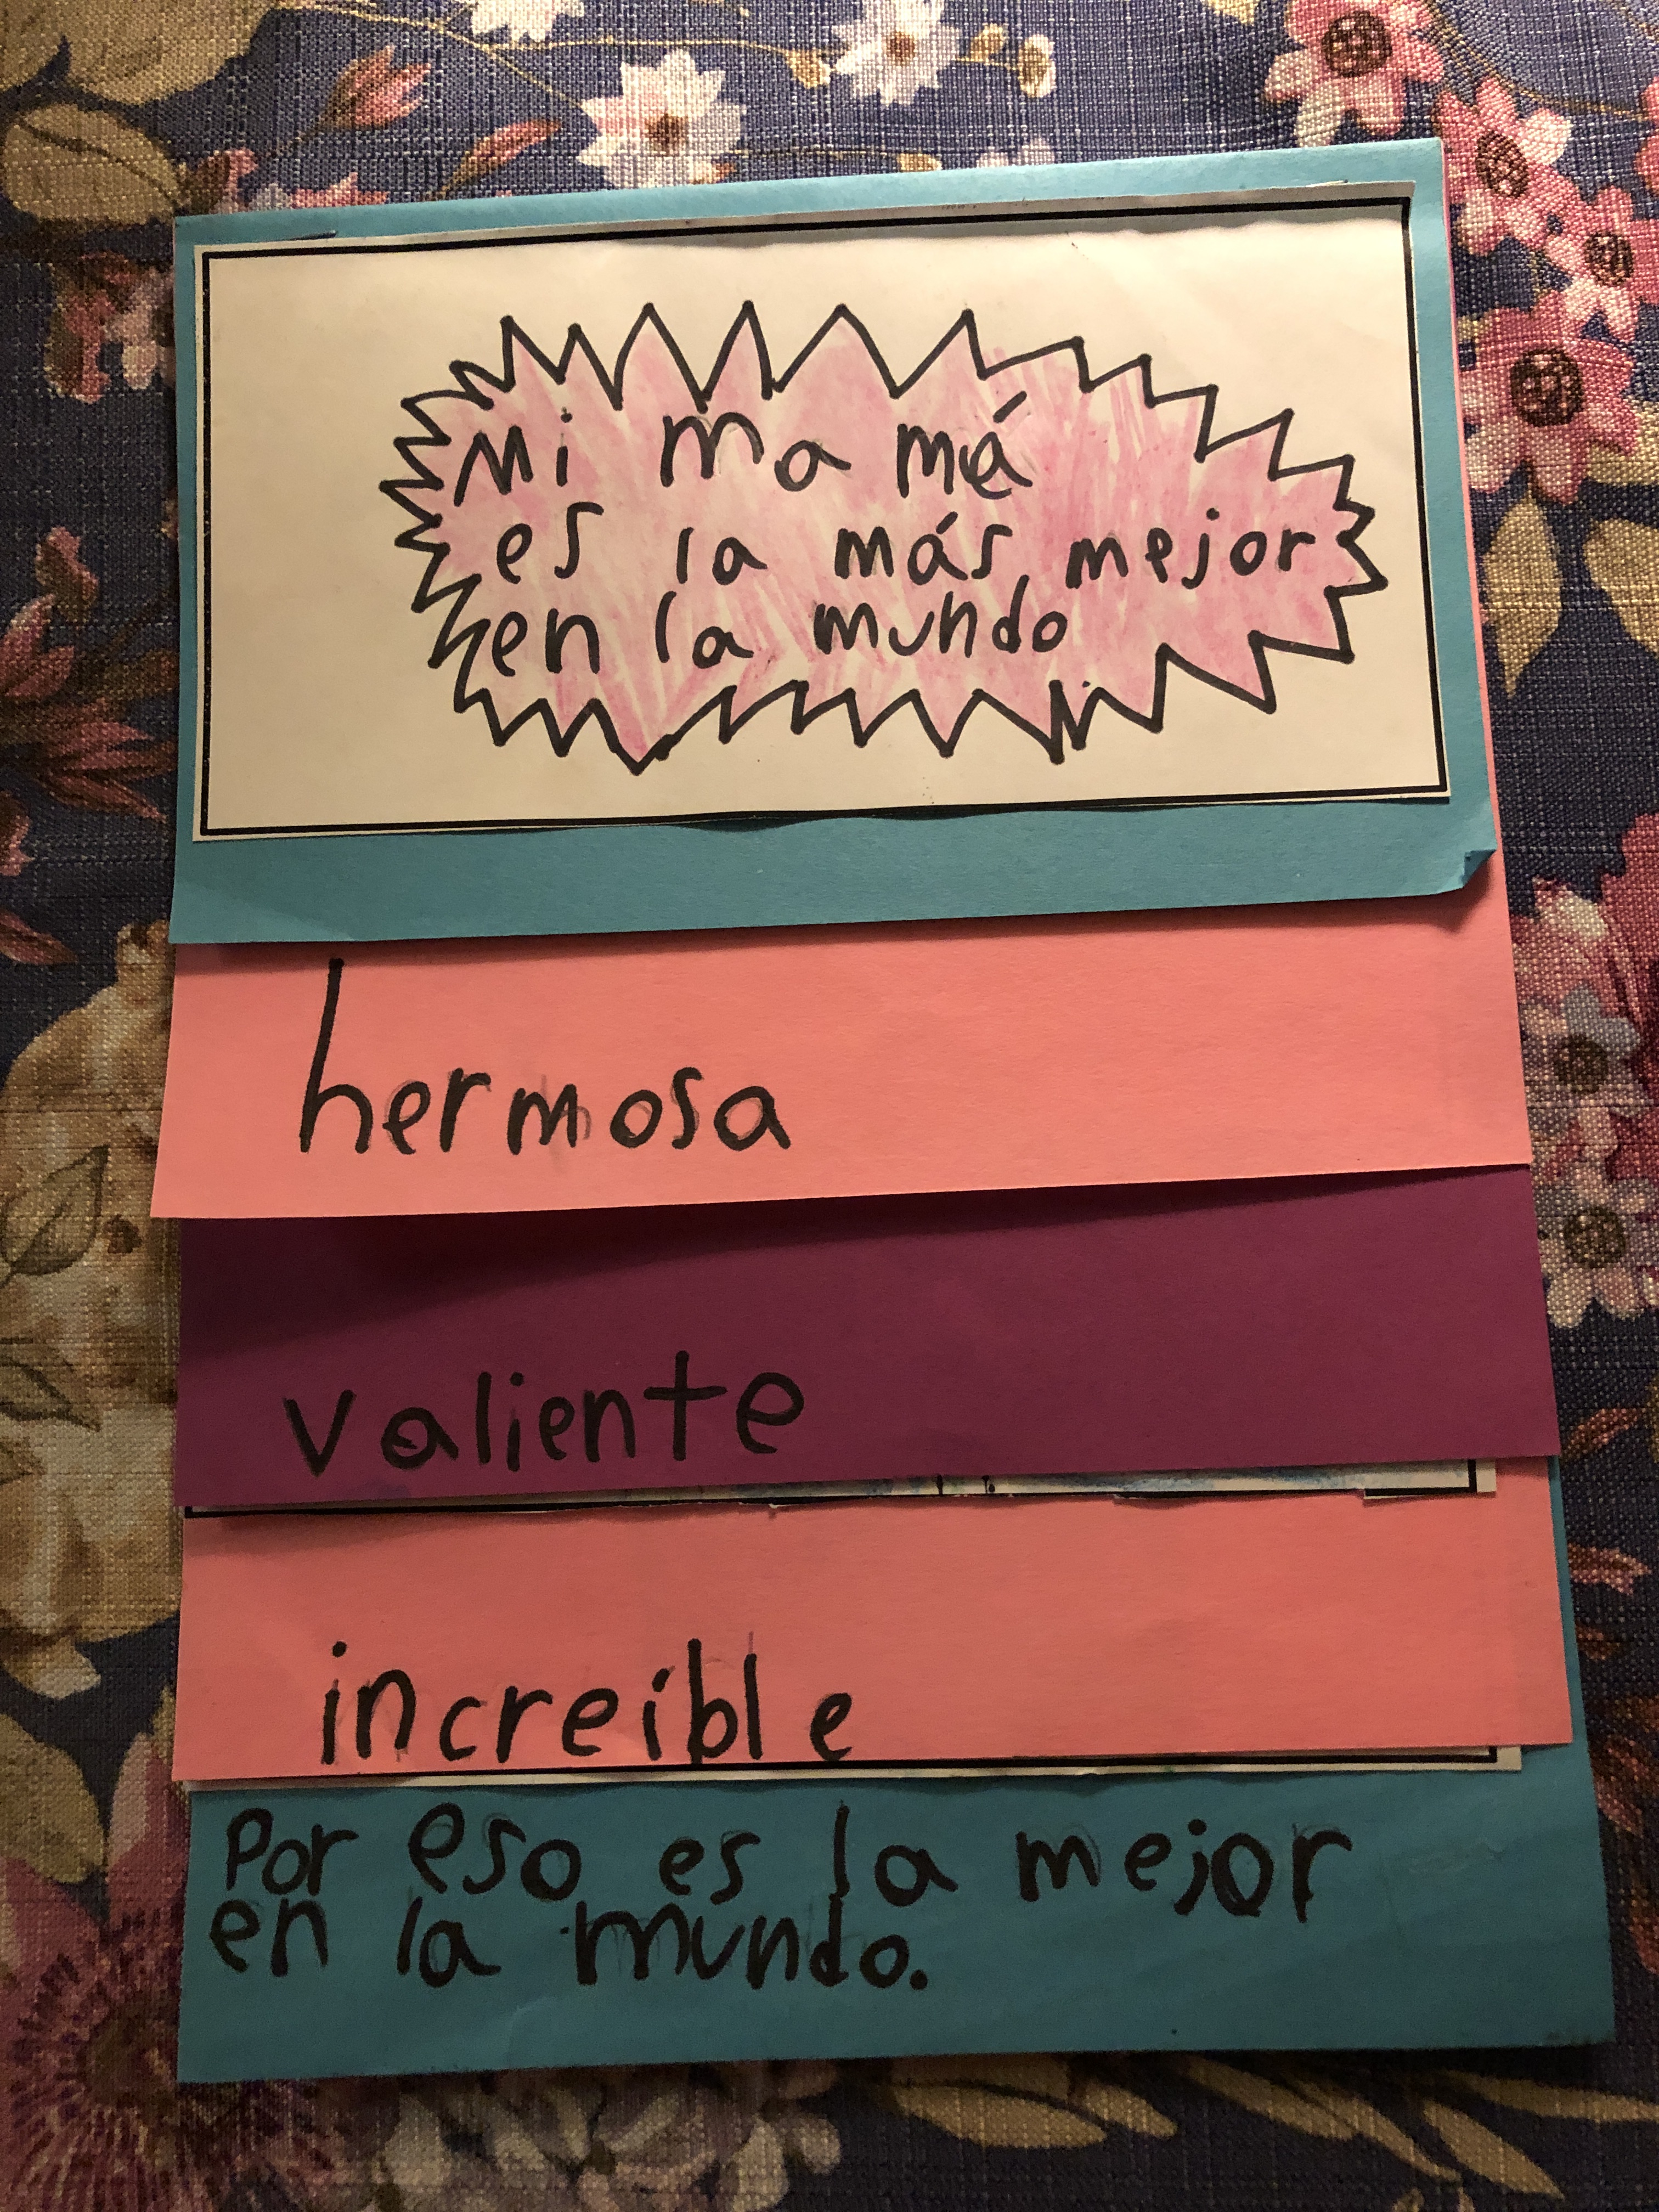 Mi mamá
es la más mejor
en la mundo
hermosa
valiente
increíble
Por eso es la mejor
en la mundo.